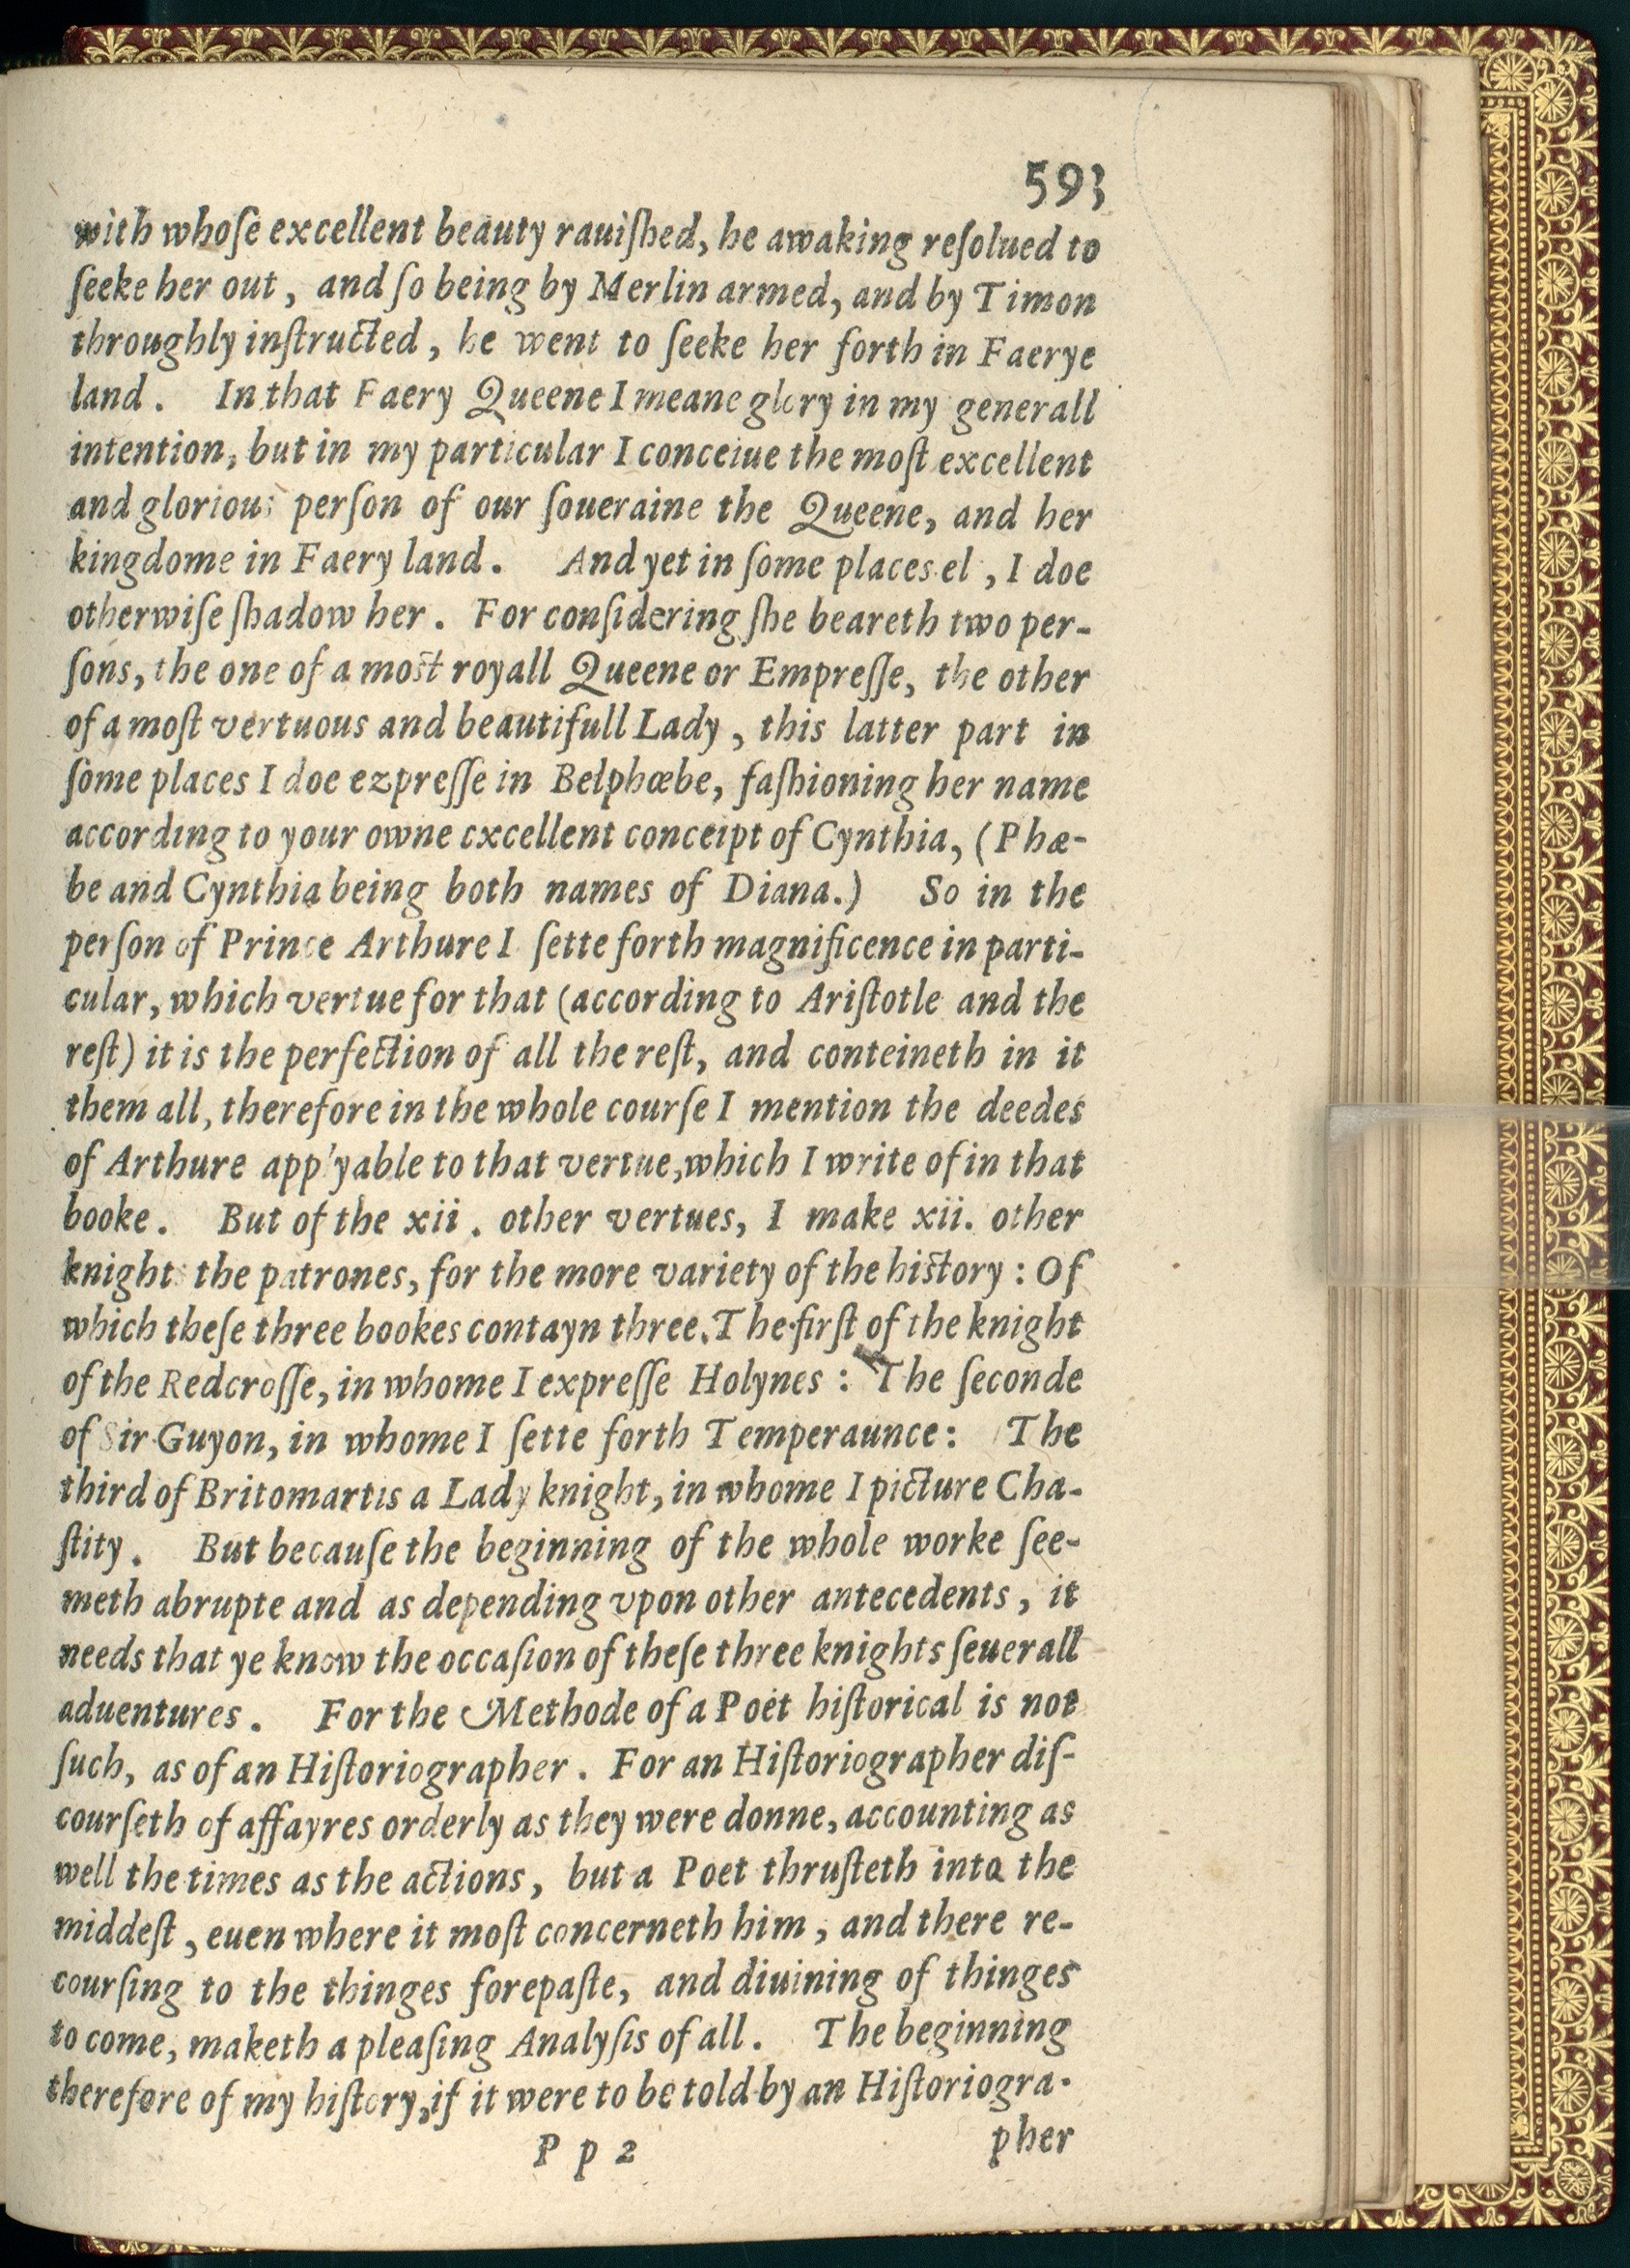 593
with whoſe excellent beauty rauiſhed, he awaking reſolued to
ſeeke her out, and ſo being by Merlin armed, and by Timon
throughly inſtructed, he went to ſeeke her forth in Faerye
land. In that Faery Queene I meane glory in my generall
intention, but in my particular I conceiue the moſt excellent
and glorious perſon of our ſoueraine the Queene, and her
kingdome in Faery land. And yet in ſome places el, I doe
otherwiſe ſhadow her. For conſidering ſhe beareth two per-
ſons, the one of a moſt royall Queene or Empreſſe, the other
of a moſt vertuous and beautifull Lady, this latter part in
ſome places I doe ezpreſſe in Belphœbe, faſhioning her name
according to your owne excellent conceipt of Cynthia, (Phæ-
be and Cynthia being both names of Diana.) So in the
perſon of Prince Arthure I ſette forth magnificence in parti-
cular, which vertue for that (according to Ariſtotle and the
reſt) it is the perfection of all the reſt, and conteineth in it
them all, therefore in the whole courſe I mention the deedes
of Arthure app'yable to that vertue, which I write of in that
booke. But of the xii. other vertues, I make xii. other
knights the patrones, for the more variety of the hiſtory: Of
which theſe three bookes contayn three. The firſt of the knight
of the Redcroſſe, in whome I expreſſe Holynes: The ſeconde
of Sir Guyon, in whome I ſette forth Temperaunce: The
third of Britomartis a Lady knight, in whome I picture Cha-
ſtity. But becauſe the beginning of the whole worke ſee-
meth abrupte and as depending vpon other antecedents, it
needs that ye know the occaſion of theſe three knights ſeuerall
aduentures. For the Methode of a Poet hiſtorical is not
ſuch, as of an Hiſtoriographer. For an Hiſtoriographer diſ-
courſeth of affayres orderly as they were donne, accounting as
well the times as the actions, but a Poet thruſteth into the
middeſt, euen where it moſt concerneth him, and there re-
courſing to the thinges forepaſte, and diuining of thinges
to come, maketh a pleaſing Analyſis of all. The beginning
therefore of my hiſtory, if it were to be told by an Hiſtoriogra-
Pp 2 pher